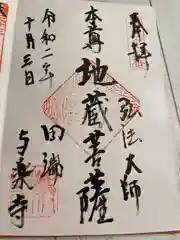 奉拝
弘法大師
本尊地蔵菩薩
田端
与楽寺
令和二年
十月三日